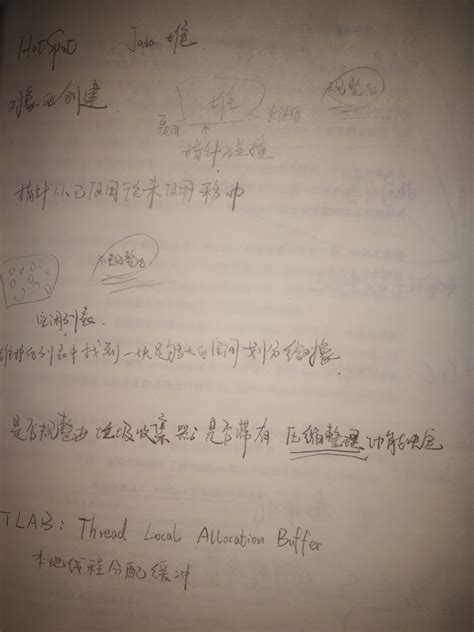 HotSpot Java 堆
对象的创建
堆
规整的
已使用 未使用
指针碰撞
指针从已使用往未使用移动
不规整的
空闲列表
维护的列表中找到一块足够大的空间划分给对象
是否规整由垃圾收集器是否带有压缩整理功能决定
TLAB: Thread Local Allocation Buffer
本地线程分配缓冲